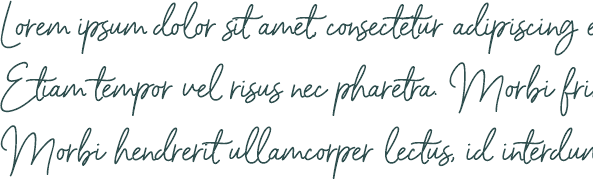 Lorem ipsum dolor sit amet, consectetur adipiscing e
Etiam tempor vel risus nec pharetra. Morbi fri
Morbi hendrerit ullamcorper lectus, id interdum